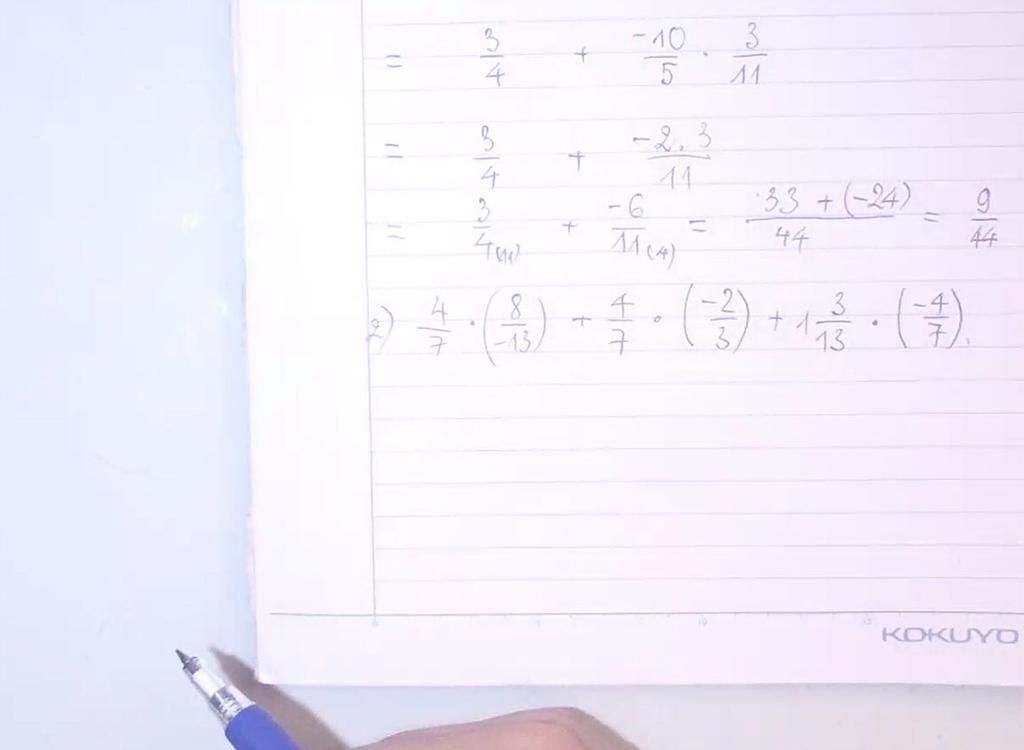 = 3/4 + -10/5 . 3/11
= 3/4 + -2.3/11
= 3/4(11) + -6/11(4) = 33 + (-24)/44 = 9/44
2) 4/7 . (8/-13) + 4/7 . (-2/3) + 1 3/13 . (-4/7).
KOKUYO